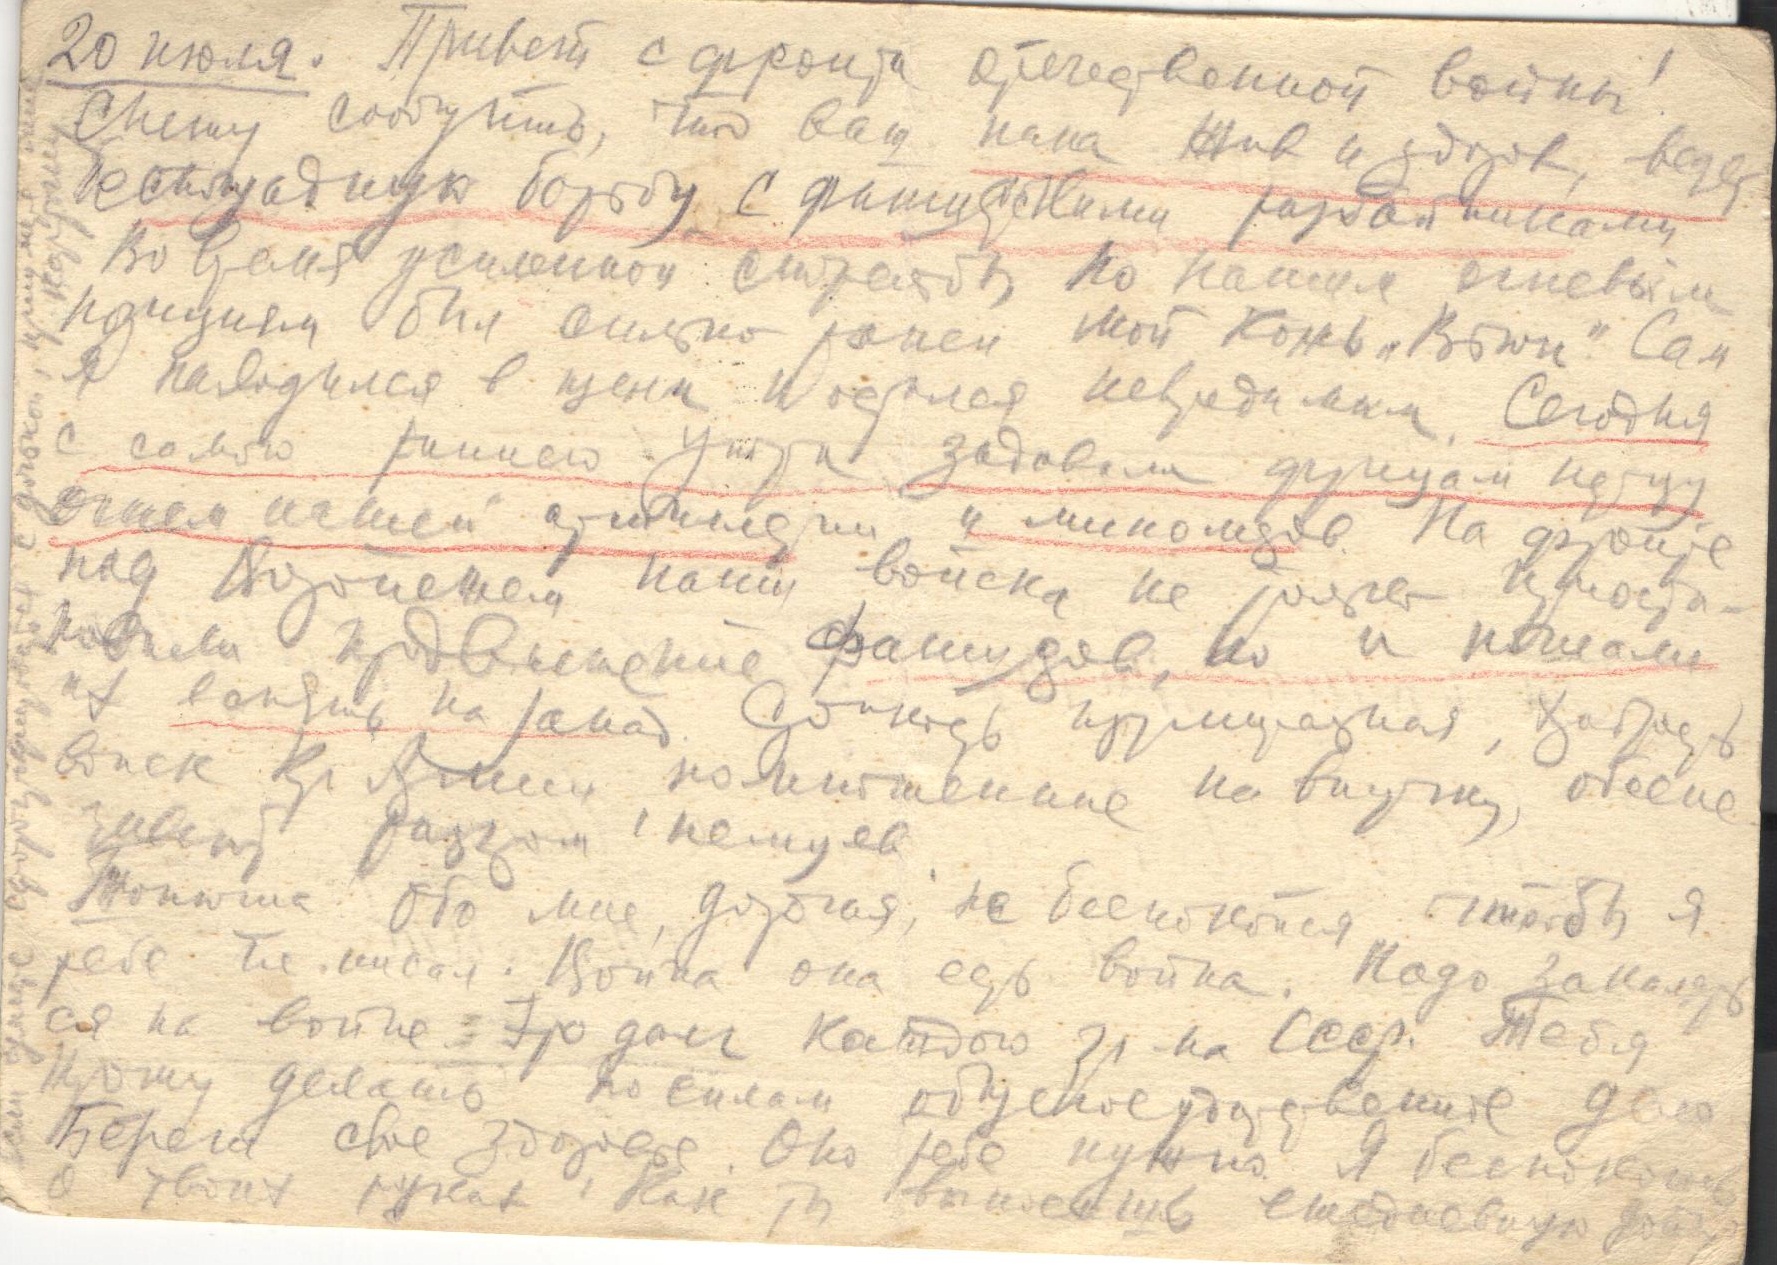 20 июля. Привет с фронта отечественной войны!
Спешу сообщить, что ваш папа жив и здоров, ведет
беспощадную борьбу с фашистскими разбойниками
Во время усиленной стрельбы по нашим огневым
позициям был сильно ранен мой конь „Вьюн“. Сам
я находился в щели и остался невредимым. Сегодня
с самого раннего утра задавали фрицам перцу
огнем нашей артиллерии и минометов. На фронте
под Воронежем наши войска не только приоста-
новили продвижение фашистов, но и начали
их гнать на запад. Стойкость, храбрость
войск Кр Армии помноженные на выучку, обеспе
чивают разгром немцев.
Тонюша Обо мне, дорогая, не беспокойся, чтобы я
тебе не писал. Война она есть война. Надо закалять
ся на войне. Это долг каждого гр-на СССР. Тебя
прошу делать по силам общегосударственное дело
Береги свое здоровье. Оно тебе нужно. Я беспокоюсь
о твоих руках. Как ты выносишь ежедневную